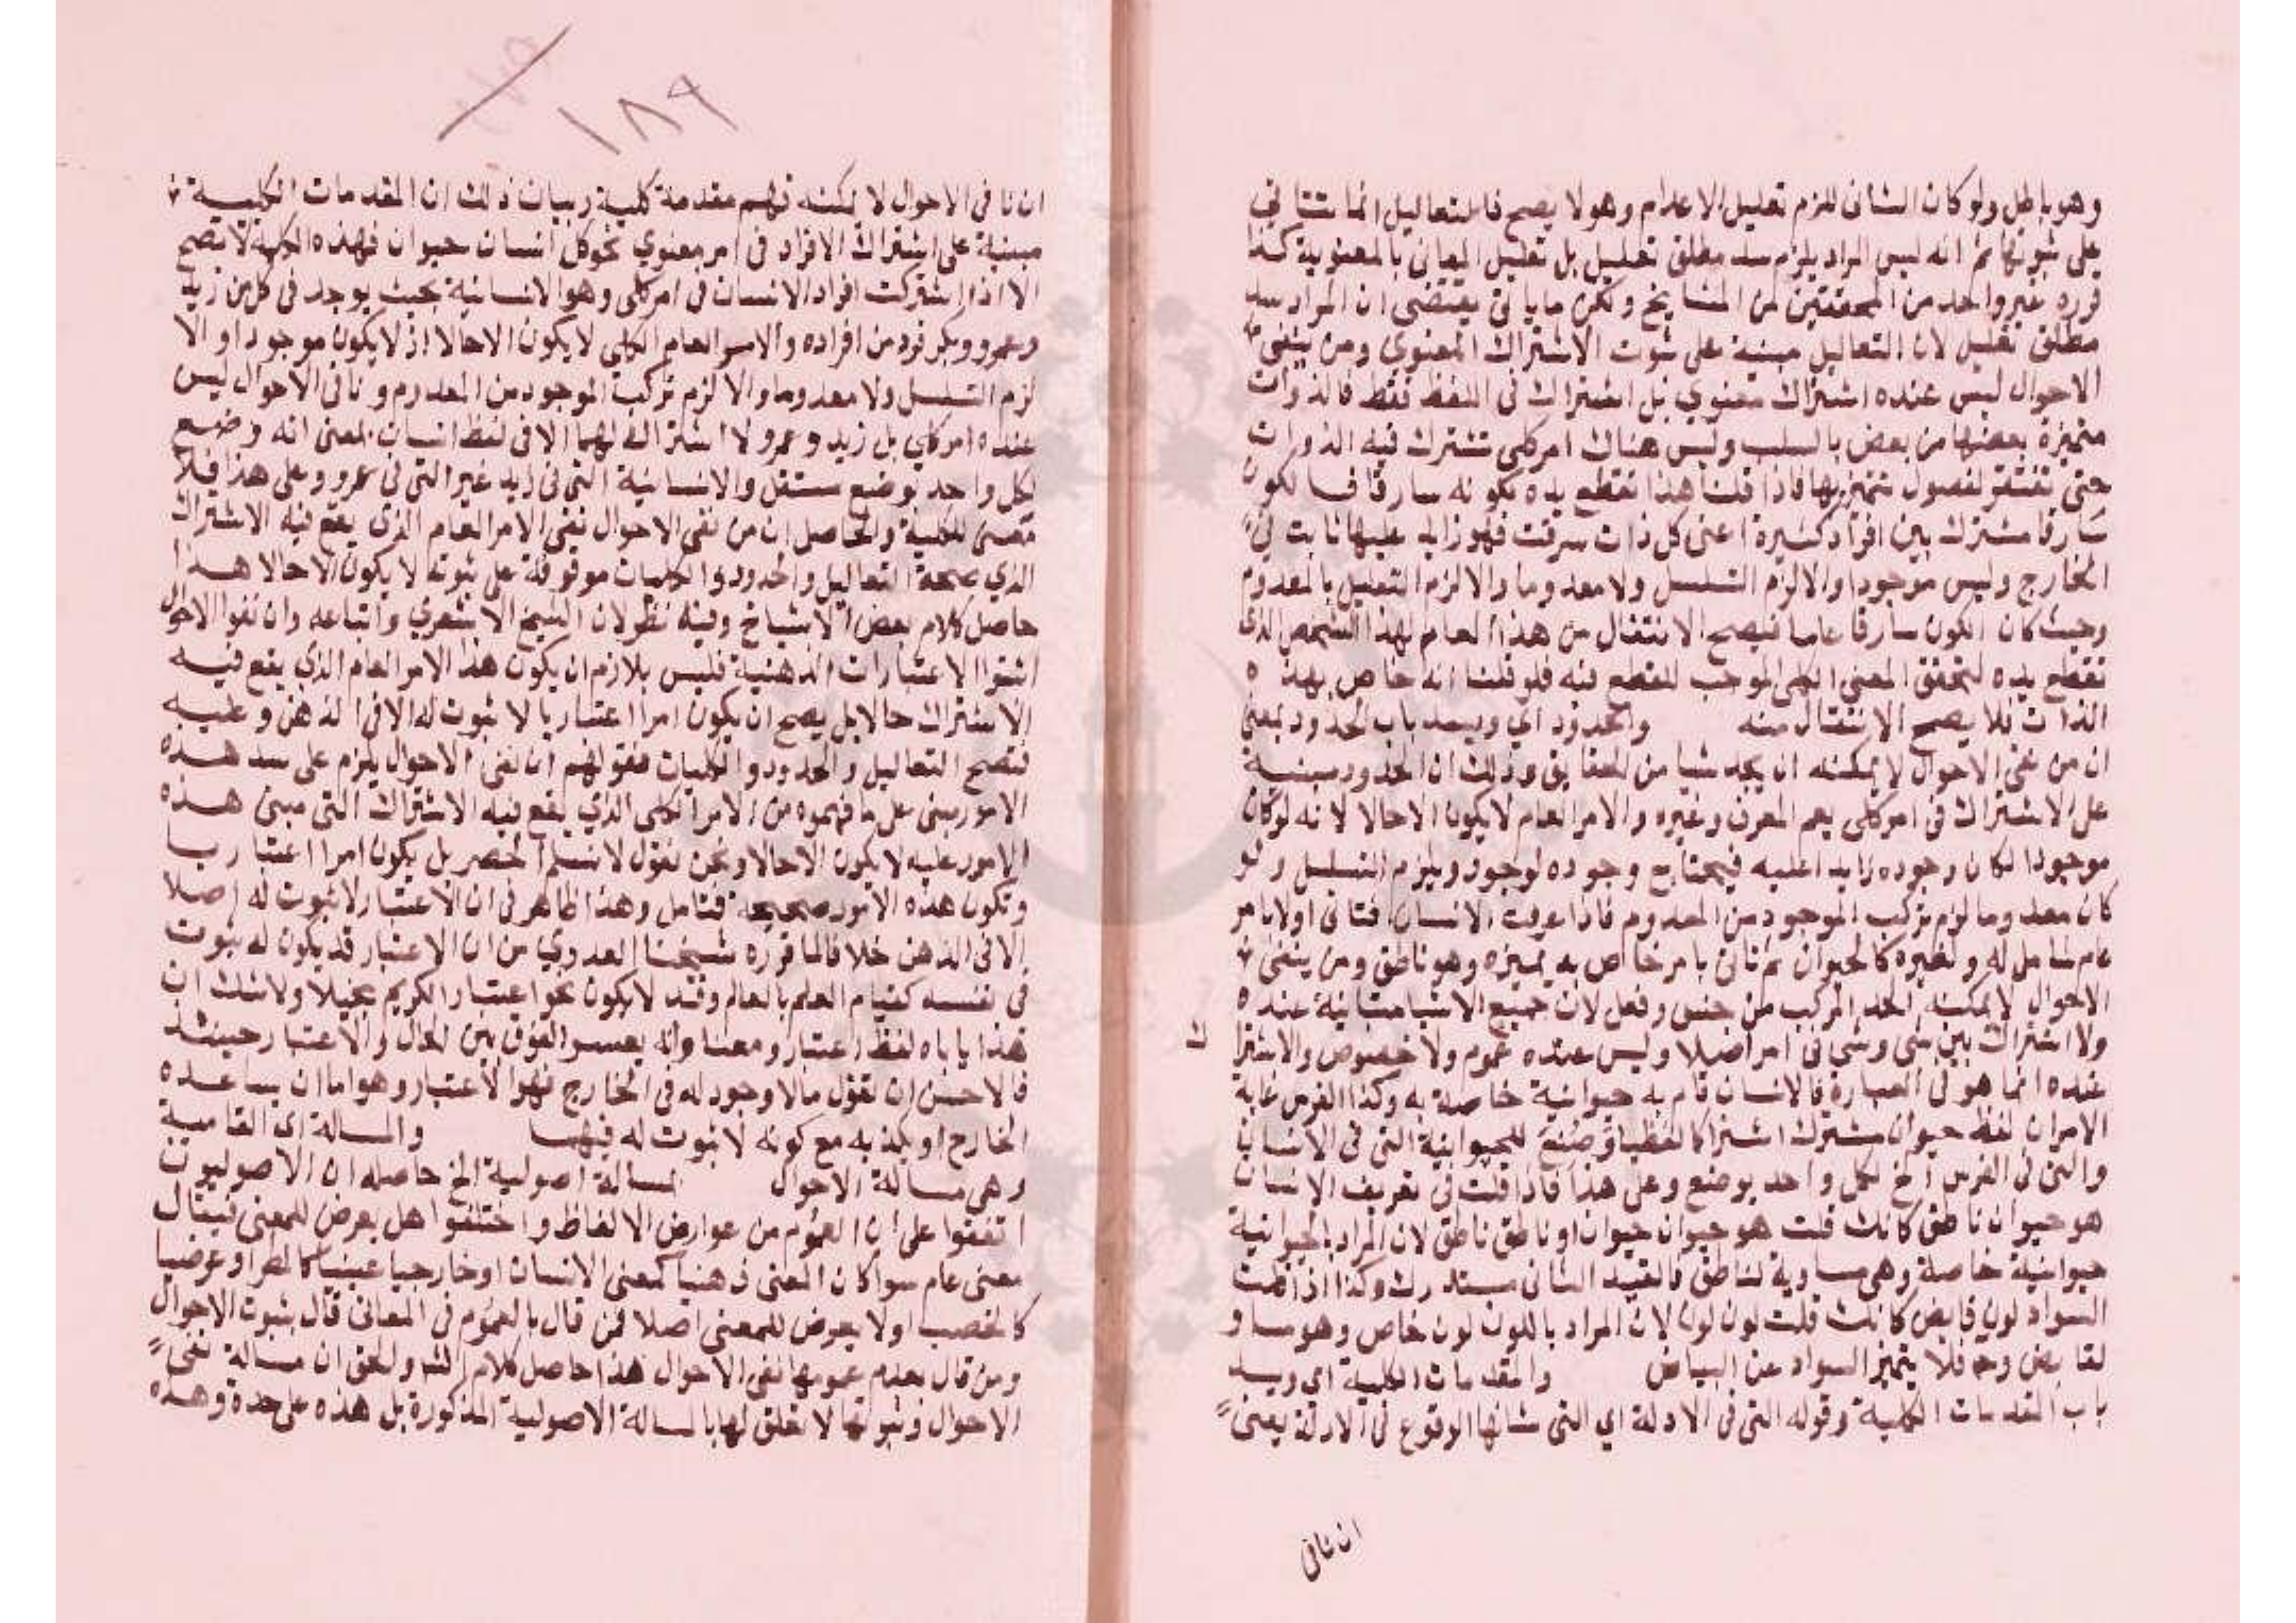 وهو باطل ولو كان الثانى للزم تعليل الاعدام وهو لا يصح فالتعاليل انما تتاتي
على ثبوتها ثم انه ليس المراد يلزم سد مطلق تعليل بل تعليل المعانى بالمعنوية كذا
قرره غير واحد من المحققين من المشايخ ولكن ما ياتى يقتضى ان المراد سد
مطلق تعليل لان التعاليل مبنية على ثبوت الاشتراك المعنوي ومن ينفى
الاحوال ليس عنده اشتراك معنوي بل اشتراك فى اللفظ فقط فالذوات
متميزة بعضها من بعض بالسلب وليس هناك امر كلى تشترك فيه الذوات
حتى تفتقر لفصول تتميز بها فاذا قلنا هذا تقطع يده لكونه سارقا فالكون
سارقا مشترك بين افراد كثيرة اعنى كل ذات سرقت فهو زايد عليها ثابت فى
الخارج وليس موجودا والا لزم التسلسل ولا معدوما والا لزم التعليل بالمعدوم
وحيث كان الكون سارقا عاما فيصح الانتقال من هذا العام لهذا الشخص الذى
تقطع يده لتحقق المعنى الكلى الموجب للقطع فيه فلو قلنا انه خاص بهذه
الذات فلا يصح الانتقال منه والحدود اي ويسد باب الحدود بمعنى
ان من نفى الاحوال لا يمكنه ان يحد شيا من الحقايق وذلك ان الحدود مبنية
على الاشتراك فى امر كلى يعم المعرف وغيره والامر العام لا يكون الا حالا لانه لو كان
موجودا لكان وجوده زايدا عليه فيحتاج وجوده لوجود ويلزم التسلسل ولو
كان معدوما لزم تركب الموجود من المعدوم فاذا عرفت الانسان فتاتى اولا بامر
عام شامل له ولغيره كالحيوان ثم تاتى بامر خاص به يميزه وهو ناطق ومن ينفى
الاحوال لا يمكنه الحد المركب من جنس وفصل لان جميع الاشيا متباينة عنده
ولا اشتراك بين شى وشى فى امر اصلا وليس عنده عموم ولا خصوص والاشترا
ك
عنده انما هو فى العبارة فالانسان قام به حيوانية خاصة به وكذا الفرس غاية
الامر ان لفظ حيوان مشترك اشتراكا لفظيا وضع للحيوانية التى فى الانسان
والتى فى الفرس الخ لكل واحد بوضع وعلى هذا فاذا قلت فى تعريف الانسان
هو حيوان ناطق كانك قلت هو حيوان حيوان او ناطق ناطق لان المراد بالحيوانية
حيوانية خاصة وهى مساوية لناطق فالقيد الثانى مستدرك وكذا اذا قلت
السواد لون قابض كانك قلت لون لون لان المراد باللون لون خاص وهو مساو
لقابض وح فلا يتميز السواد عن البياض والمقدمات الكلية اى ويسد
باب المقدمات الكلية وقوله التى فى الادلة اي التى شانها الوقوع فى الادلة يعنى
ان نافى
١٨٩
ان نافى الاحوال لا يمكنه فهم مقدمة كلية وبيان ذلك ان المقدمات الكلية
مبنية على اشتراك الافراد فى امر معنوي نحو كل انسان حيوان فهذه الكلية لا تصح
الا اذا اشتركت افراد الانسان فى امر كلى وهو الانسانية بحيث يوجد فى كل من زيد
وعمرو وبكر فرد من افراده والامر العام الكلى لا يكون الا حالا اذ لا يكون موجودا والا
لزم التسلسل ولا معدوما والا لزم تركب الموجود من المعدوم ونافى الاحوال ليس
عنده امر كلي بل زيد وعمرو لا اشتراك لهما الا فى لفظ انسان بمعنى انه وضع
لكل واحد بوضع مستقل والانسانية التى فى زيد غير التى فى عمرو وعلى هذا فلا
معنى للكلية والحاصل ان من نفى الاحوال نفى الامر العام الذى يقع فيه الاشتراك
الذي صحة التعاليل والحدود والكليات موقوفة على ثبوته لا يكون الا حالا هذا
حاصل كلام بعض الاشياخ وفيه نظر لان الشيخ الاشعري واتباعه وان نفوا الاحوال
اثبتوا الاعتبارات الذهنية فليس بلازم ان يكون هذا الامر العام الذي يقع فيه
الاشتراك حالا بل يصح ان يكون امرا اعتباريا لا ثبوت له الا فى الذهن وعليه
فتصح التعاليل والحدود والكليات فقولهم ان نفى الاحوال يلزم على سد هذه
الامور مبنى على ما فهموه من الامر الكلى الذي يقع فيه الاشتراك التى مبنى هذه
الامور عليه لا يكون الا حالا ونحن نقول لا نسلم الحصر بل يكون امرا اعتباريا
وتكون هذه الامور صحيحة فتامل وهذا ظاهر فى ان الاعتبار لا ثبوت له اصلا
الا فى الذهن خلافا لما قرره شيخنا العدوي من ان الاعتبار قد يكون له ثبوت
فى نفسه كقيام العلم بالعالم وقد لا يكون نحو اعتبار الكريم بخيلا ولا شك ان
هذا ياباه لفظ اعتبار ومعناه وانه يعسر الفرق بين الحال والاعتبار حينئذ
فالاحسن ان نقول ما لا وجود له فى الخارج فهو الاعتبار وهو اما ان يساعده
الخارج او يكذبه مع كونه لا ثبوت له فيهما والمسالة اى القامية
وهى مسالة الاحوال لمسالة اصولية الخ حاصله ان الاصوليون
اتفقوا على ان العموم من عوارض الالفاظ واختلفوا هل يعرض للمعنى فيقال
معنى عام سوا كان المعنى ذهنيا كمعنى الانسان او خارجيا عينيا كالمطر او عرضيا
كالخصب او لا يعرض للمعنى اصلا فمن قال بالعموم فى المعانى قال بثبوت الاحوال
ومن قال بعدم عمومها نفى الاحوال هذا حاصل كلام الش والحق ان مسالة نفى
الاحوال وثبوتها لا تعلق لها بالمسالة الاصولية المذكورة بل هذه على حدة وهذه